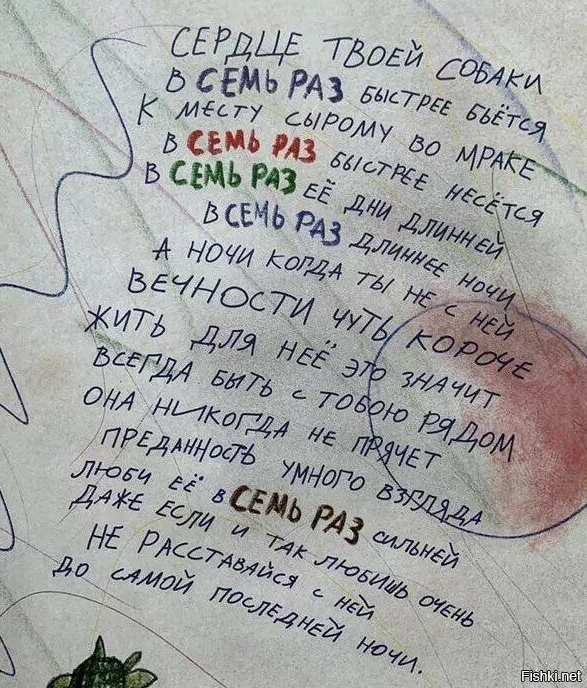 СЕРДЦЕ ТВОЕЙ СОБАКИ
В СЕМЬ РАЗ БЫСТРЕЕ БЬЁТСЯ
К МЕСТУ СЫРОМУ ВО МРАКЕ
В СЕМЬ РАЗ БЫСТРЕЕ НЕСЁТСЯ
В СЕМЬ РАЗ ЕЁ ДНИ ДЛИННЕЙ
В СЕМЬ РАЗ ДЛИННЕЕ НОЧИ
А НОЧИ КОГДА ТЫ НЕ С НЕЙ
ВЕЧНОСТИ ЧУТЬ КОРОЧЕ
ЖИТЬ ДЛЯ НЕЁ ЭТО ЗНАЧИТ
ВСЕГДА БЫТЬ С ТОБОЮ РЯДОМ
ОНА НИКОГДА НЕ ПРЯЧЕТ
ПРЕДАННОСТЬ УМНОГО ВЗГЛЯДА
ЛЮБИ ЕЁ В СЕМЬ РАЗ СИЛЬНЕЙ
ДАЖЕ ЕСЛИ И ТАК ЛЮБИШЬ ОЧЕНЬ
НЕ РАССТАВАЙСЯ С НЕЙ
ДО САМОЙ ПОСЛЕДНЕЙ НОЧИ.
Fishki.net